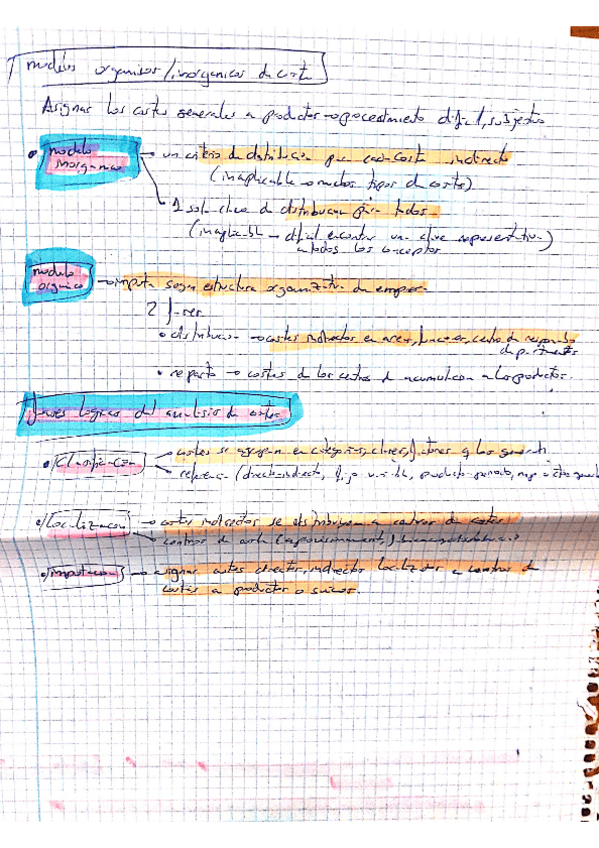 modelos organicos/inorganicos de coste
Asignar los costes generales a productos → procedimiento difícil, subjetivo
• modelo inorganico → un criterio de distribucion por cada coste indirecto
(inaplicable → muchos tipos de costes)
1 sola clave de distribucion para todos.
(inaplicable → difícil encontrar una clave representativa)
a todos los conceptos
modelo organico → imputa segun estructura organizativa de empresa
2 fases
• distribucion → costes indirectos en areas, funciones, centros de responsab
departamentos
• reparto → costes de los centros de acumulacion a los productos.
Fases logicas del analisis de costes
• Clasificacion → costes se agrupan en categorias, clases,
(directo-indirecto, fijo variable, producto-periodo,
• Localizacion → costes indirectos se distribuyen a centros de costes
centros de coste (aprovisionamiento,
• imputacion → asignar costes directos, indirectos localizados a centros de
costes a productos o servicios.